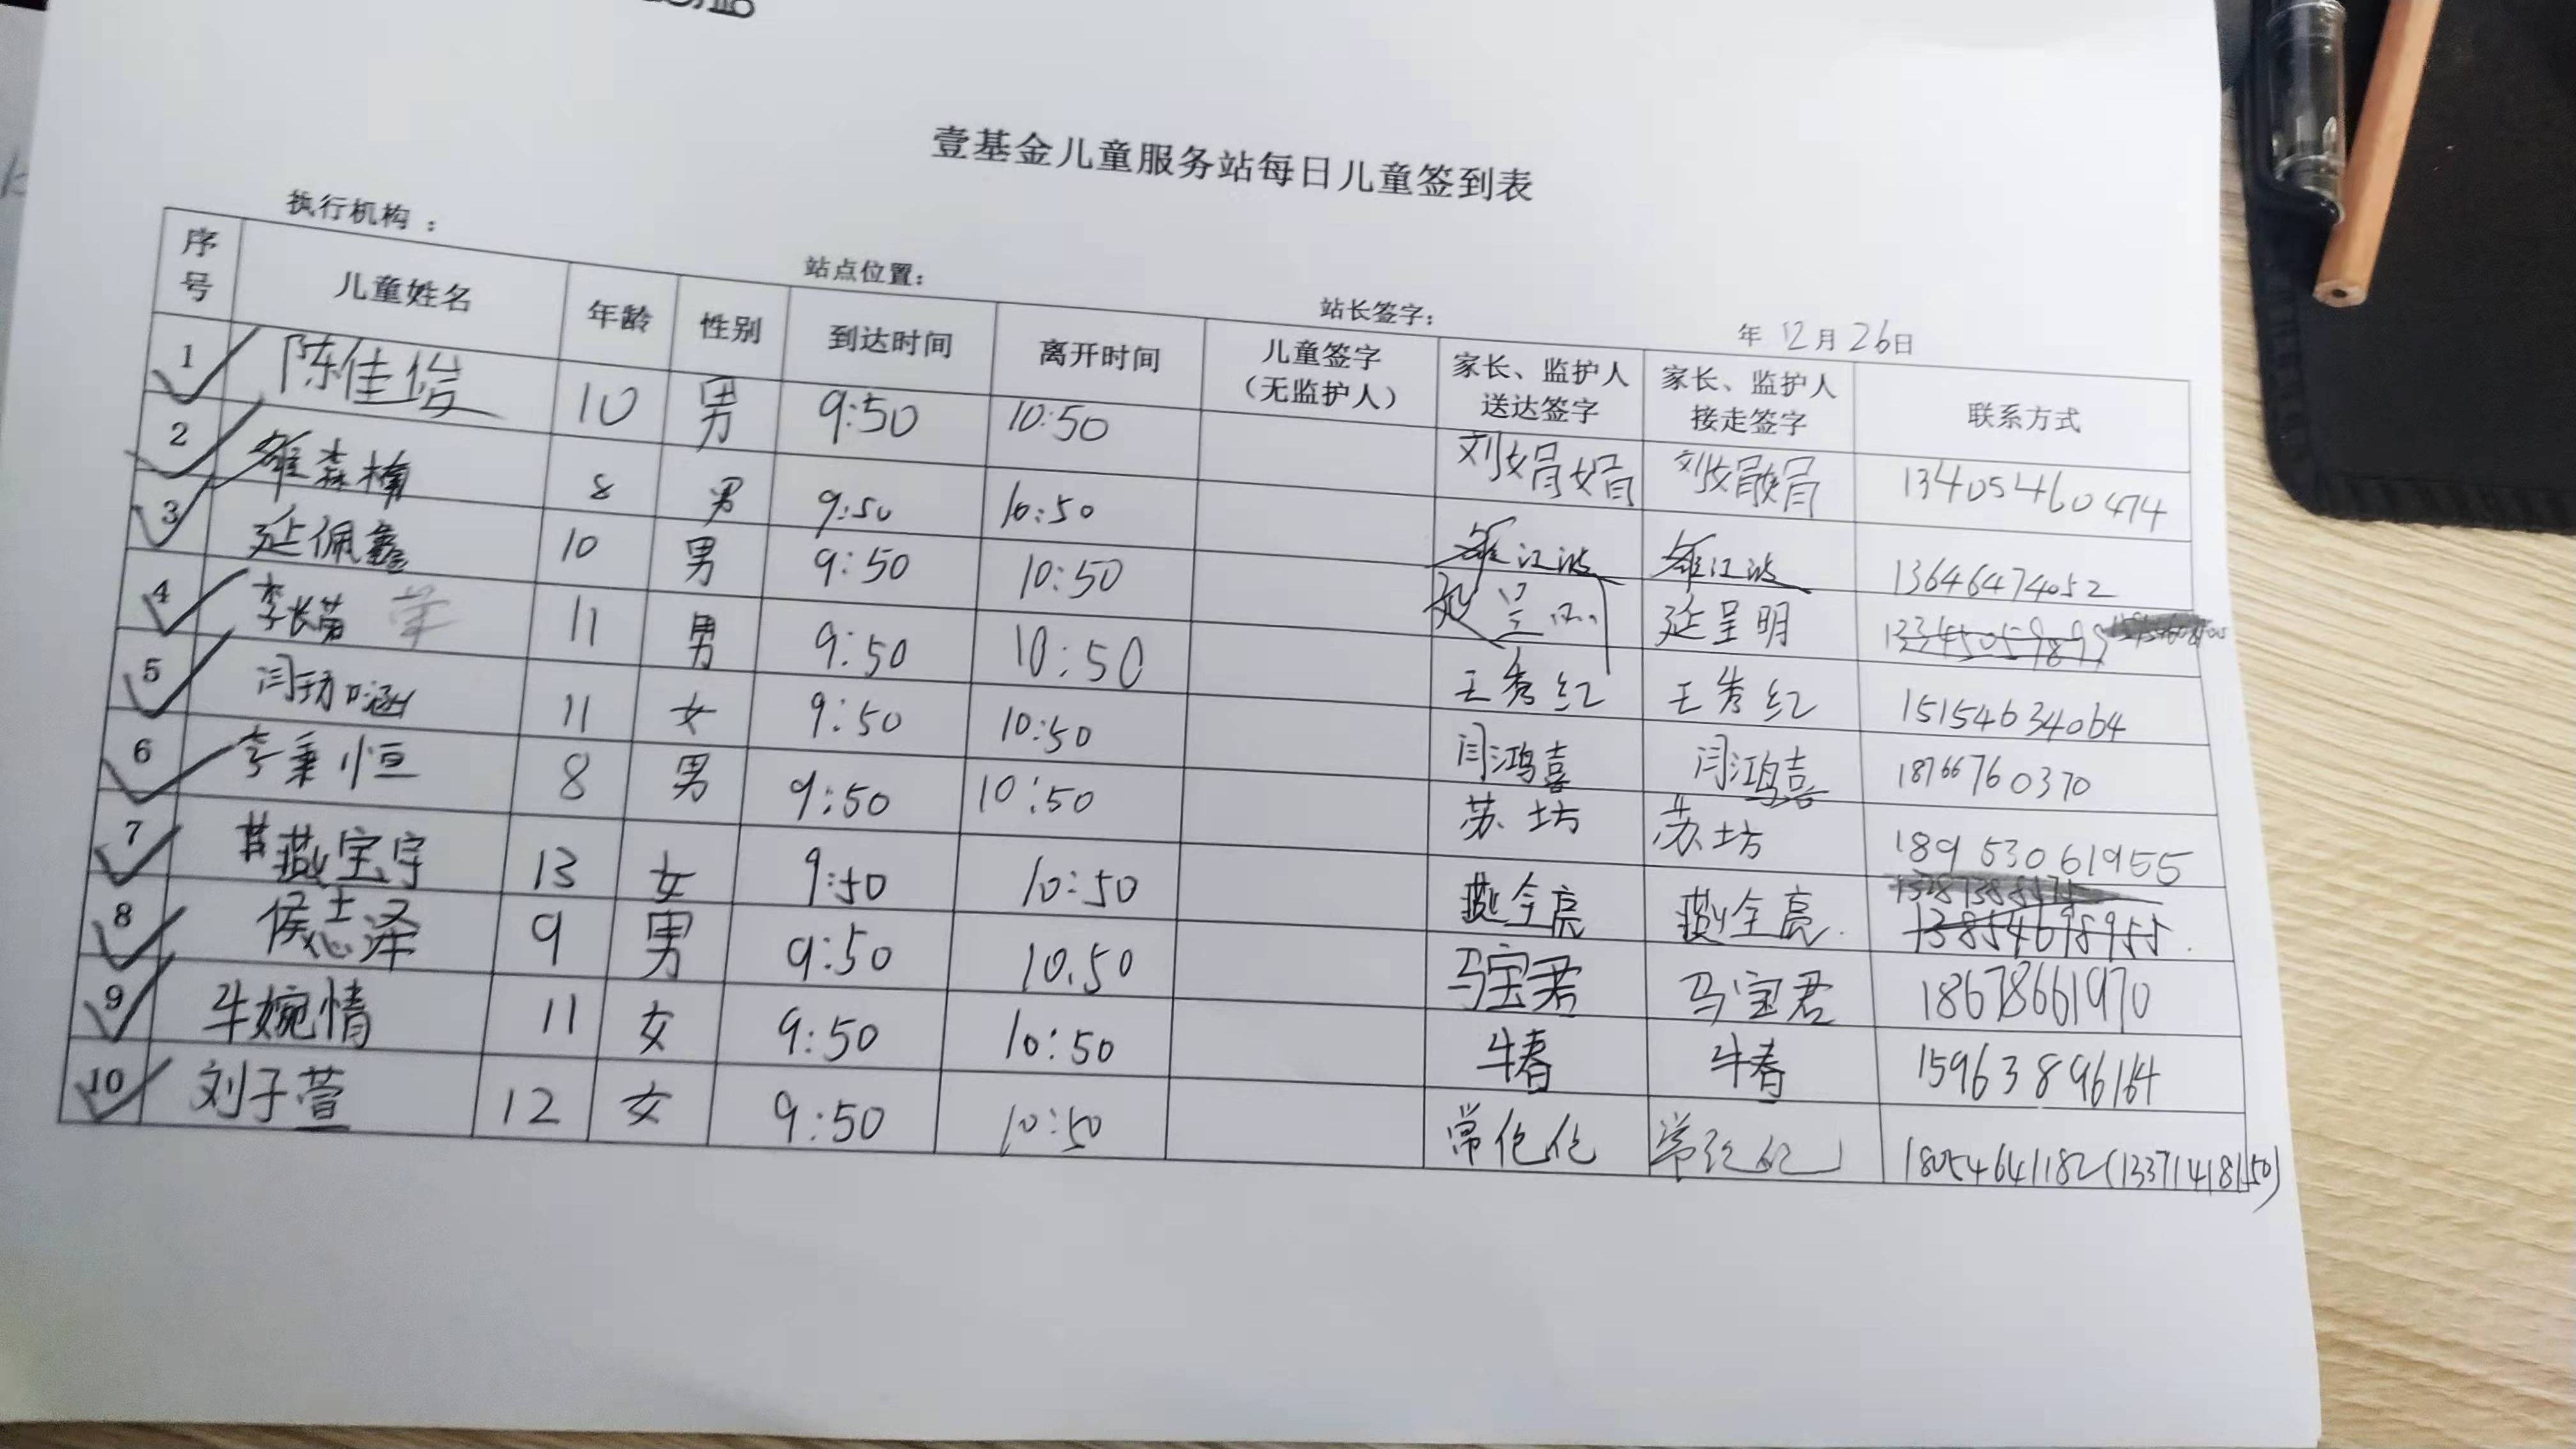 壹基金儿童服务站每日儿童签到表
执行机构：
站点位置：
站长签字：
年 12月26日
序号 儿童姓名 年龄 性别 到达时间 离开时间 儿童签字（无监护人） 家长、监护人送达签字 家长、监护人接走签字 联系方式
1 陈佳俊 10 男 9:50 10:50 刘娟娟 13405460474
2 森楠 8 男 9:50 10:50 江波 江波 13646474052
3 延佩鑫 10 男 9:50 10:50 延呈明 13345059899
4 李长 11 男 9:50 10:50 王秀红 王秀红 15154634064
5 闫 涵 11 女 9:50 10:50 闫鸿喜 闫鸿喜 18766760370
6 李秉恒 8 男 9:50 10:50 苏坊 苏坊 18953061955
7 燕宝宇 13 女 9:50 10:50 燕全亮 燕全亮 13854698955
8 侯志泽 9 男 9:50 10.50 马宝君 马宝君 18678661970
9 牛婉情 11 女 9:50 10:50 牛春 牛春 15963896164
10 刘子萱 12 女 9:50 10:50 常伦伦 18054641182(13371418150)